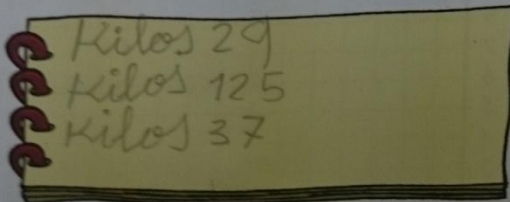 Kilos 29
Kilos 125
Kilos 37